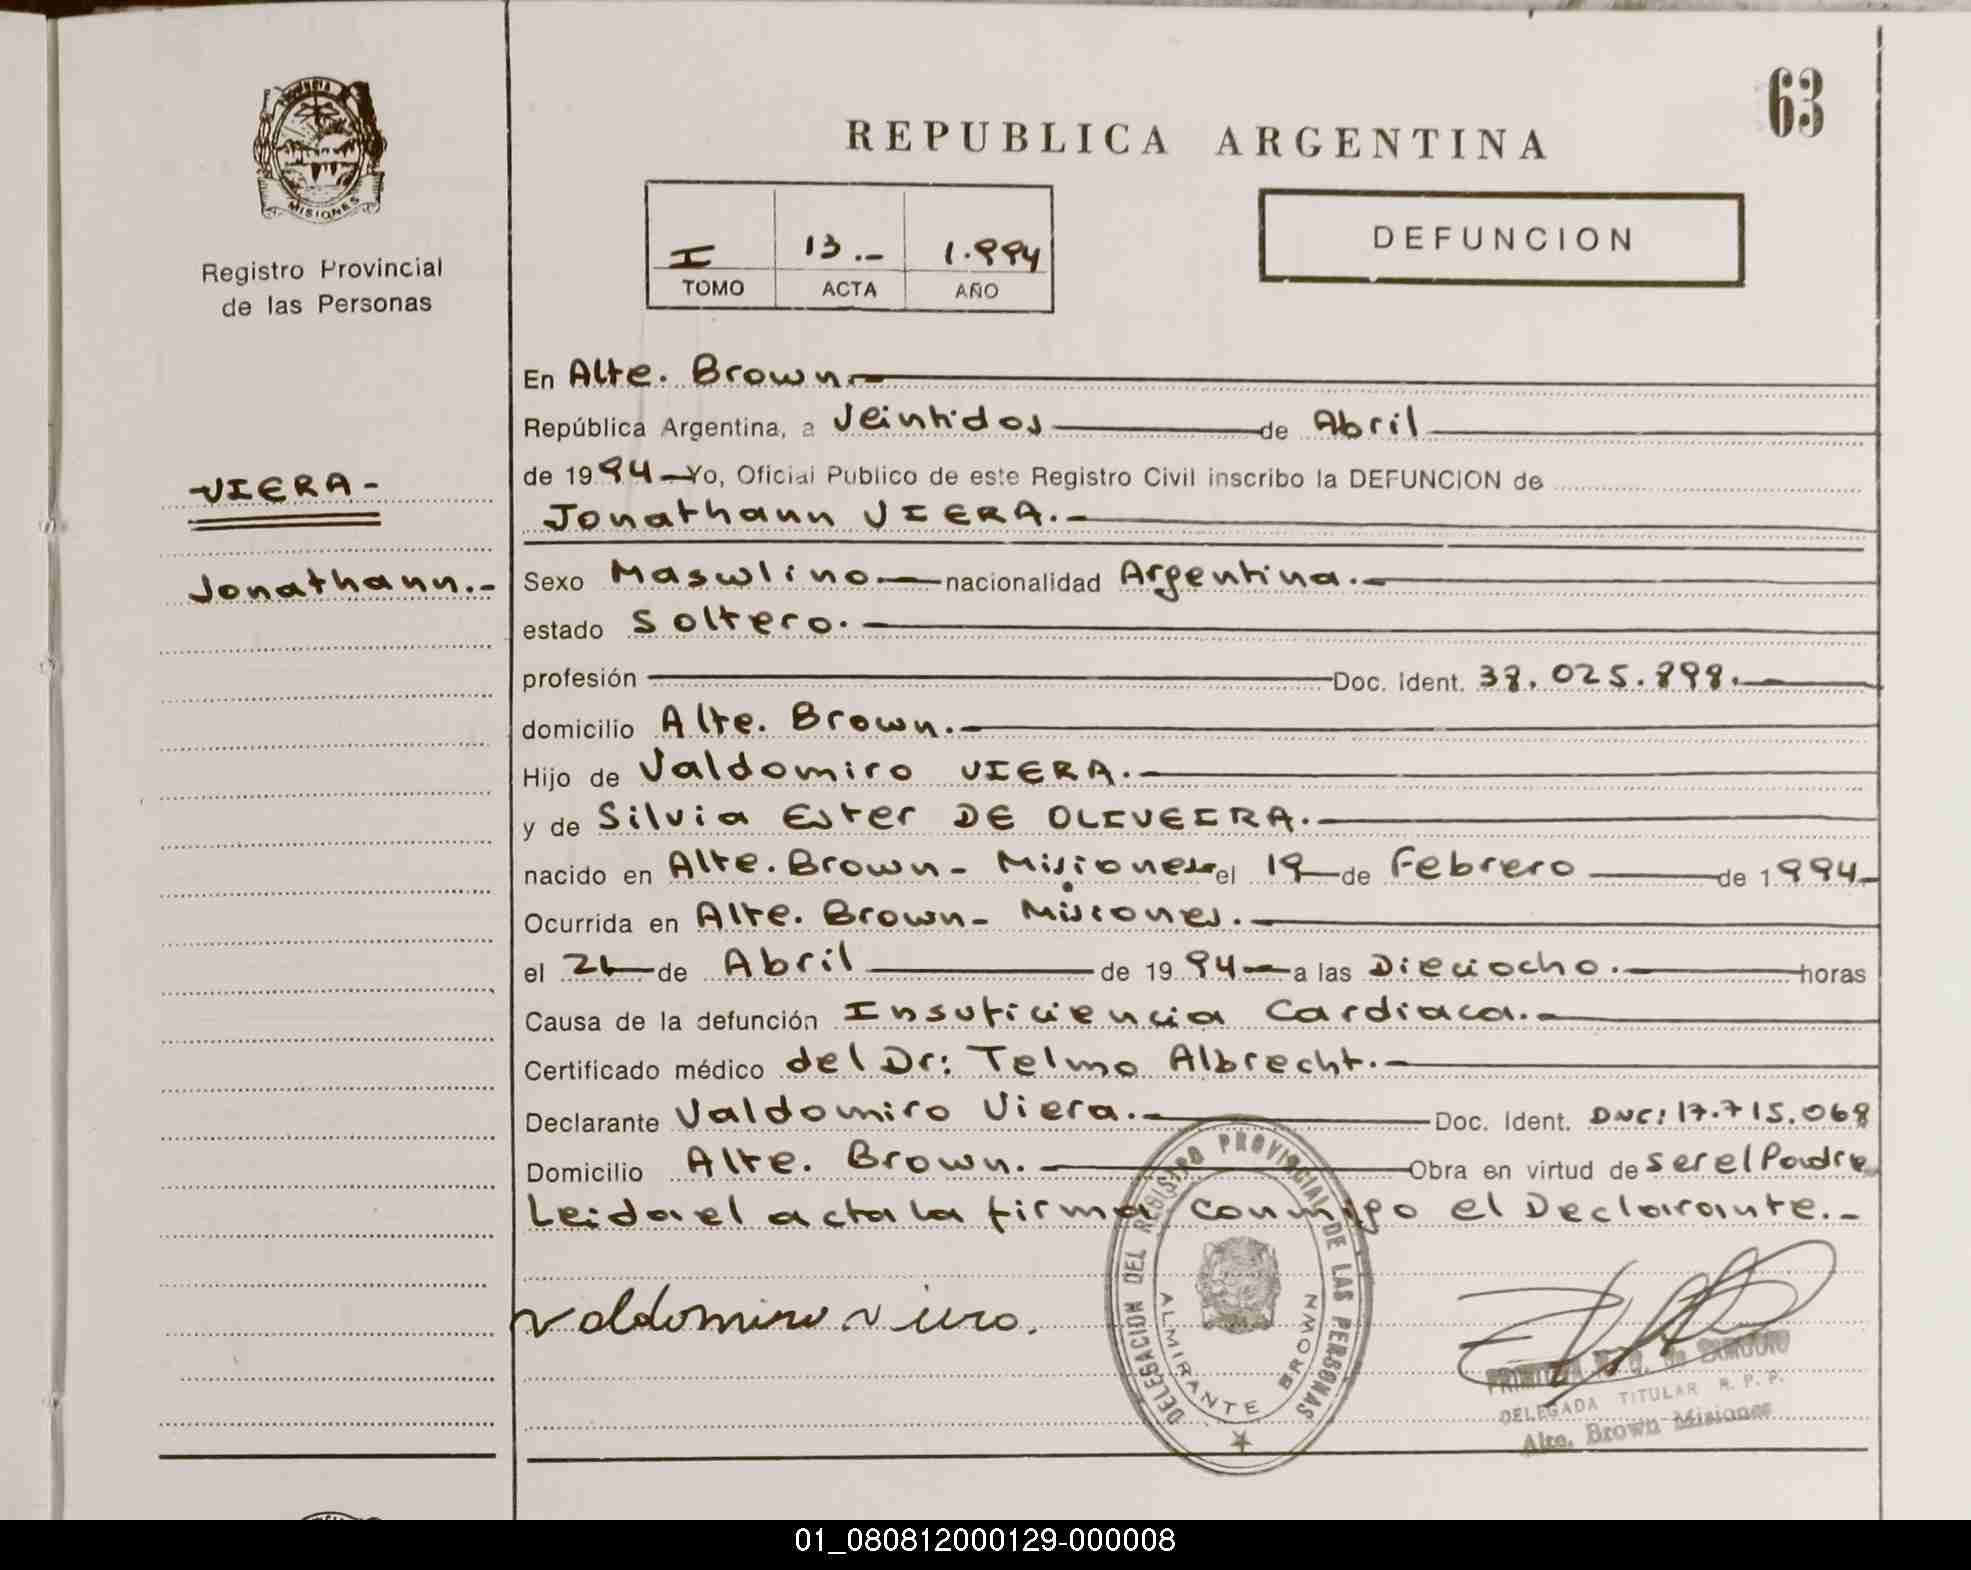 63
PROVINCIA
MISIONES
Registro Provincial
de las Personas
REPUBLICA ARGENTINA
I 13.- 1.994
TOMO ACTA AÑO
DEFUNCION
VIERA-
Jonathann.-
En Alte. Brown.-
República Argentina, a Veintidos de Abril
de 1994 Yo, Oficial Publico de este Registro Civil inscribo la DEFUNCION de
Jonathann VIERA.-
Sexo Masculino nacionalidad Argentina.-
estado Soltero.
profesión Doc. Ident. 38.025.898.
domicilio Alte. Brown.-
Hijo de Valdomiro VIERA.-
y de Silvia Ester DE OLIVEIRA.
nacido en Alte. Brown- Misiones el 19 de Febrero de 1994-
Ocurrida en Alte. Brown- Misiones.
el 21 de Abril de 1994 a las Dieciocho. horas
Causa de la defunción Insuficiencia Cardiaca.-
Certificado médico del Dr: Telmo Albrecht.-
Declarante Valdomiro Viera.- Doc. Ident. DNI: 17.715.068
Domicilio Alte. Brown. Obra en virtud de ser el Padre
Leida el acta la firma conmigo el Declarante.-
Valdomiro Viera.
DELEGACION DEL REGISTRO PROVINCIAL DE LAS PERSONAS
ALMIRANTE BROWN
DELEGADA TITULAR R. P. P.
Alte. Brown Misiones
01_080812000129-000008